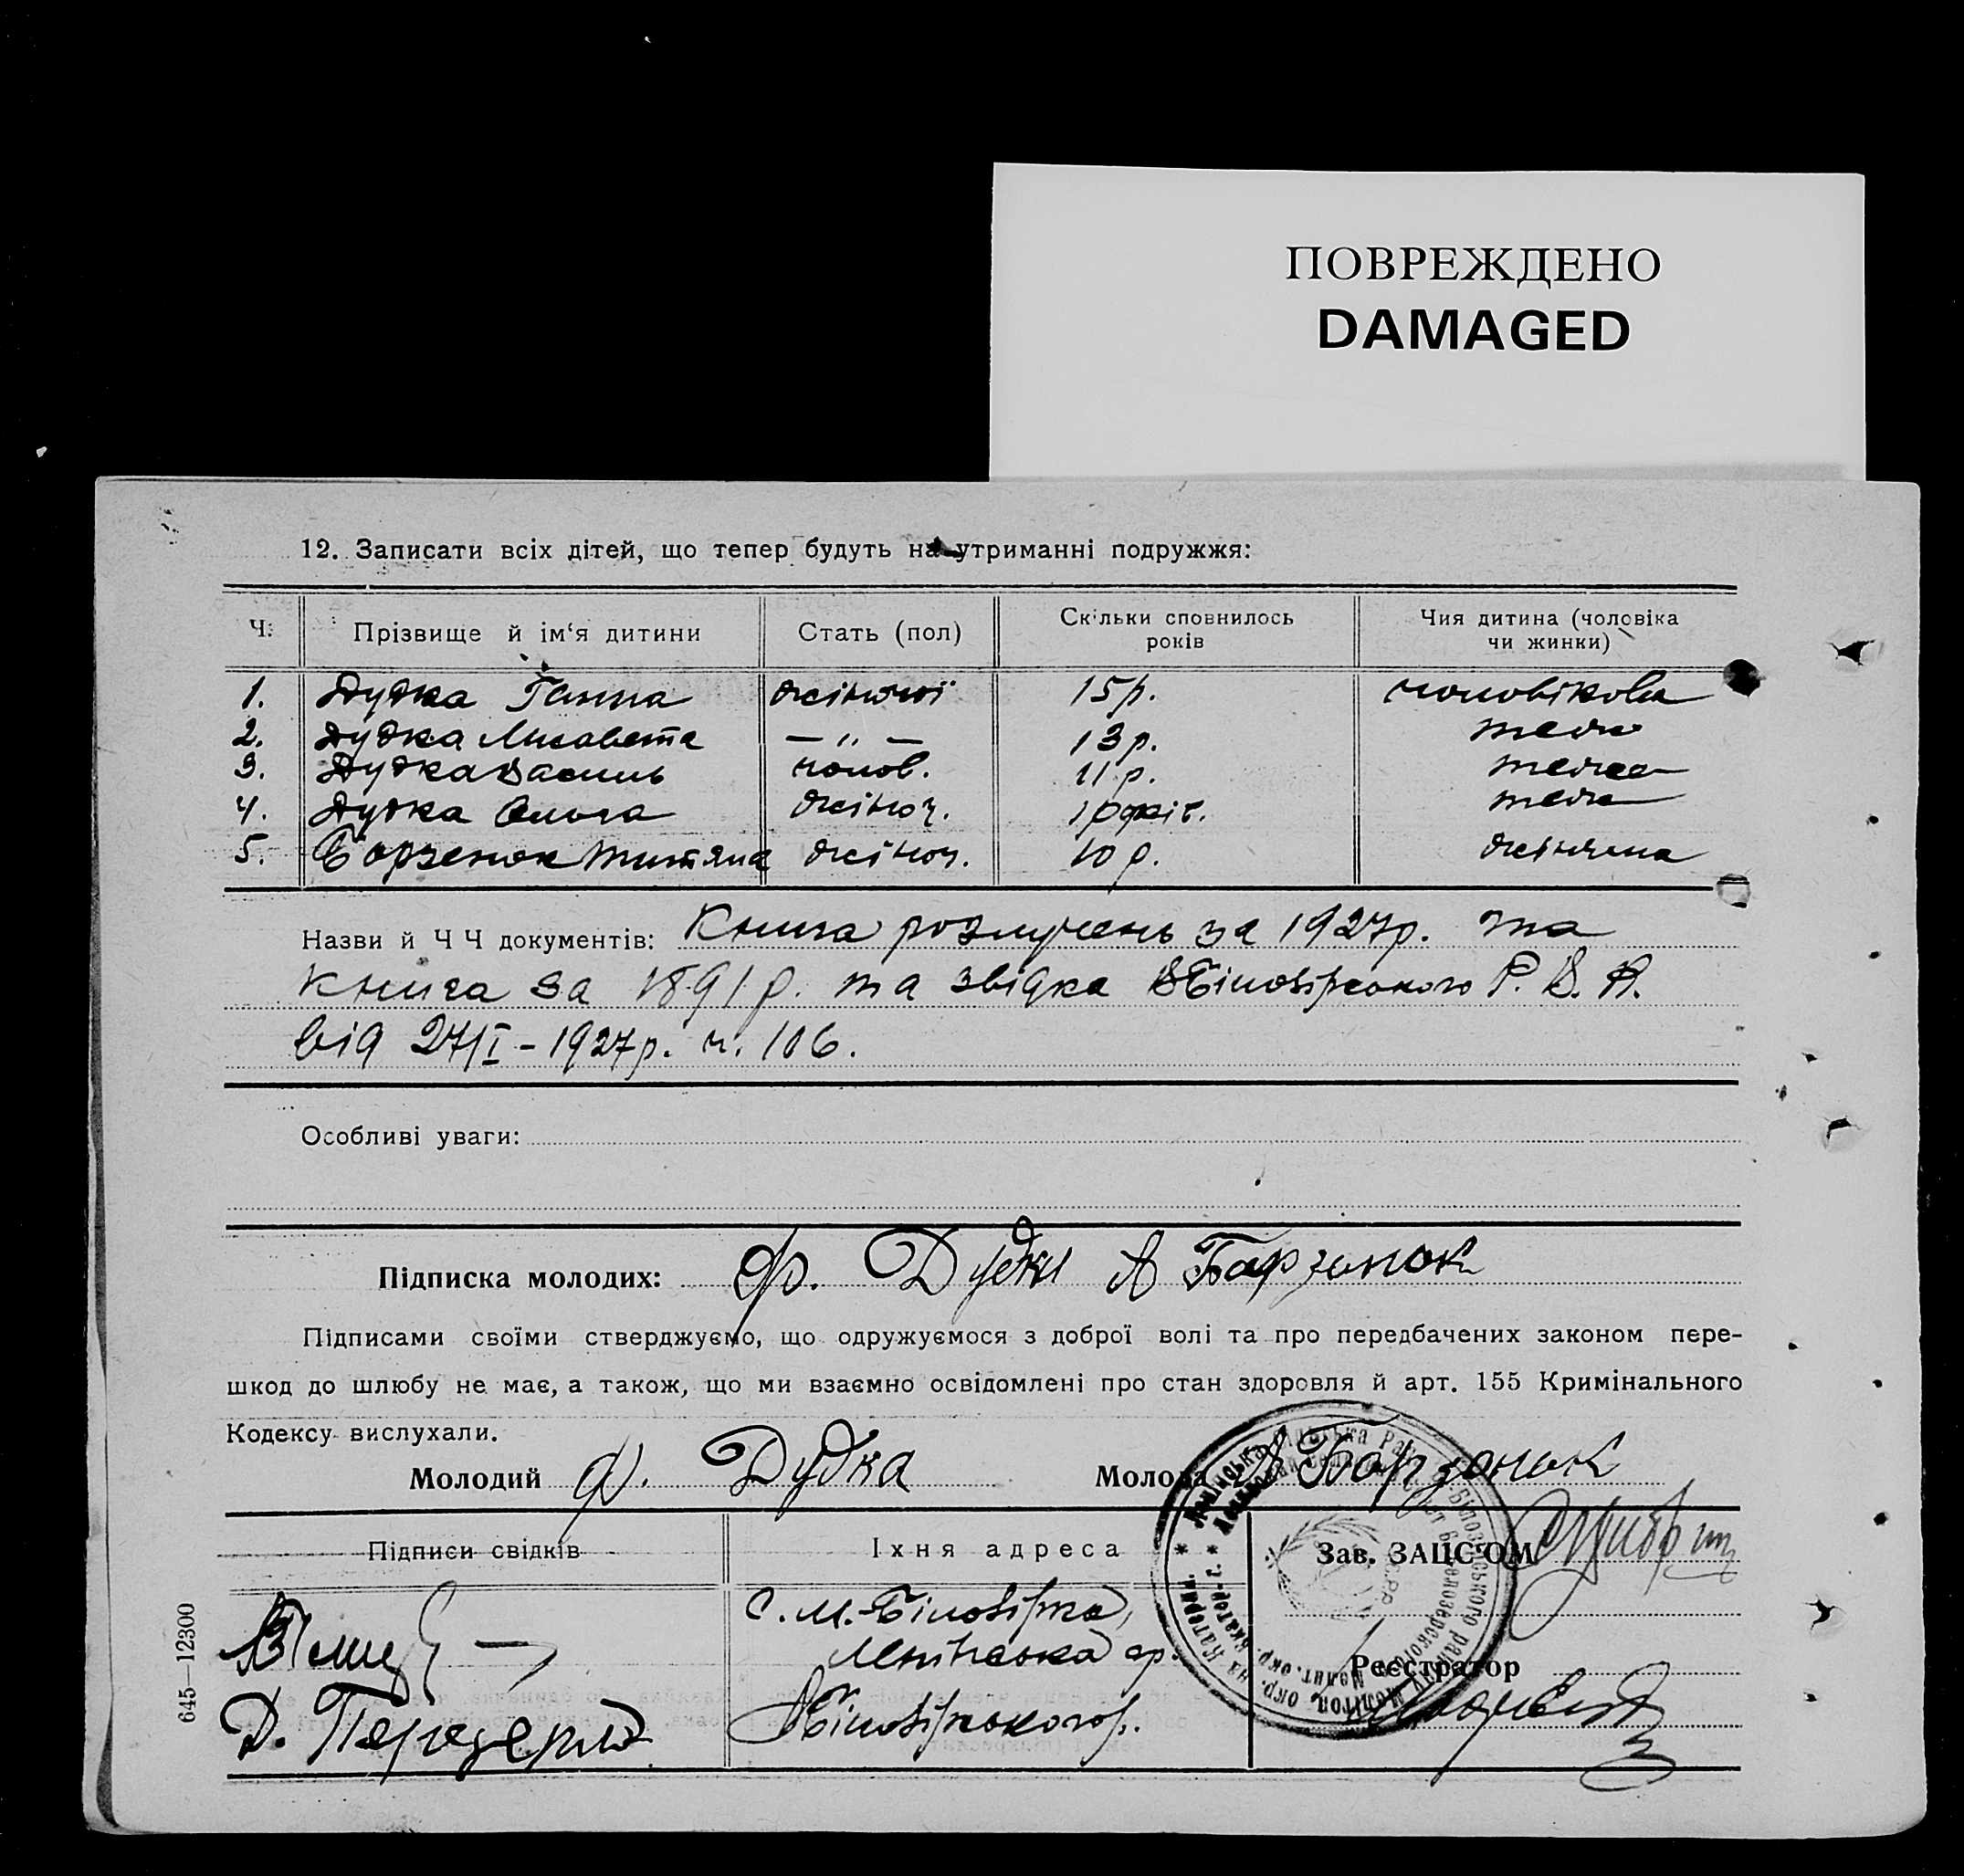 ПОВРЕЖДЕНО
DAMAGED
12. Записати всіх дітей, що тепер будуть на утриманні подружжя:
Ч. Прізвище й ім'я дитини Стать (пол) Скільки сповнилось років Чия дитина (чоловіка чи жинки)
1. Дудка Ганна жіночої 15 р. чоловікова
2. Дудка Лисавета — " — 13 р. теж
3. Дудка Василь чолов. 11 р. теж
4. Дудка Ольга жіноч. теж
5. Борзенок жіноч. 10 р. жінчина
Назви й Ч Ч документів: Книга розлучень за 1927р. та
книга за 1891 р. та звідка Р. В. К.
від 27/I - 1927р. ч. 106.
Особливі уваги:
Підписка молодих: Ф. Дудка А Борзенок
Підписами своїми стверджуємо, що одружуємося з доброї волі та про передбачених законом пере-
шкод до шлюбу не має, а також, що ми взаємно освідомлені про стан здоровля й арт. 155 Кримінального
Кодексу вислухали.
Молодий Ф. Дудка Молода А Борзенок
Підписи свідків Їхня адреса Зав. ЗАЦС'ОМ
С. М.-Білозірка,
Ленінська
Реєстратор
Д.
645—12300